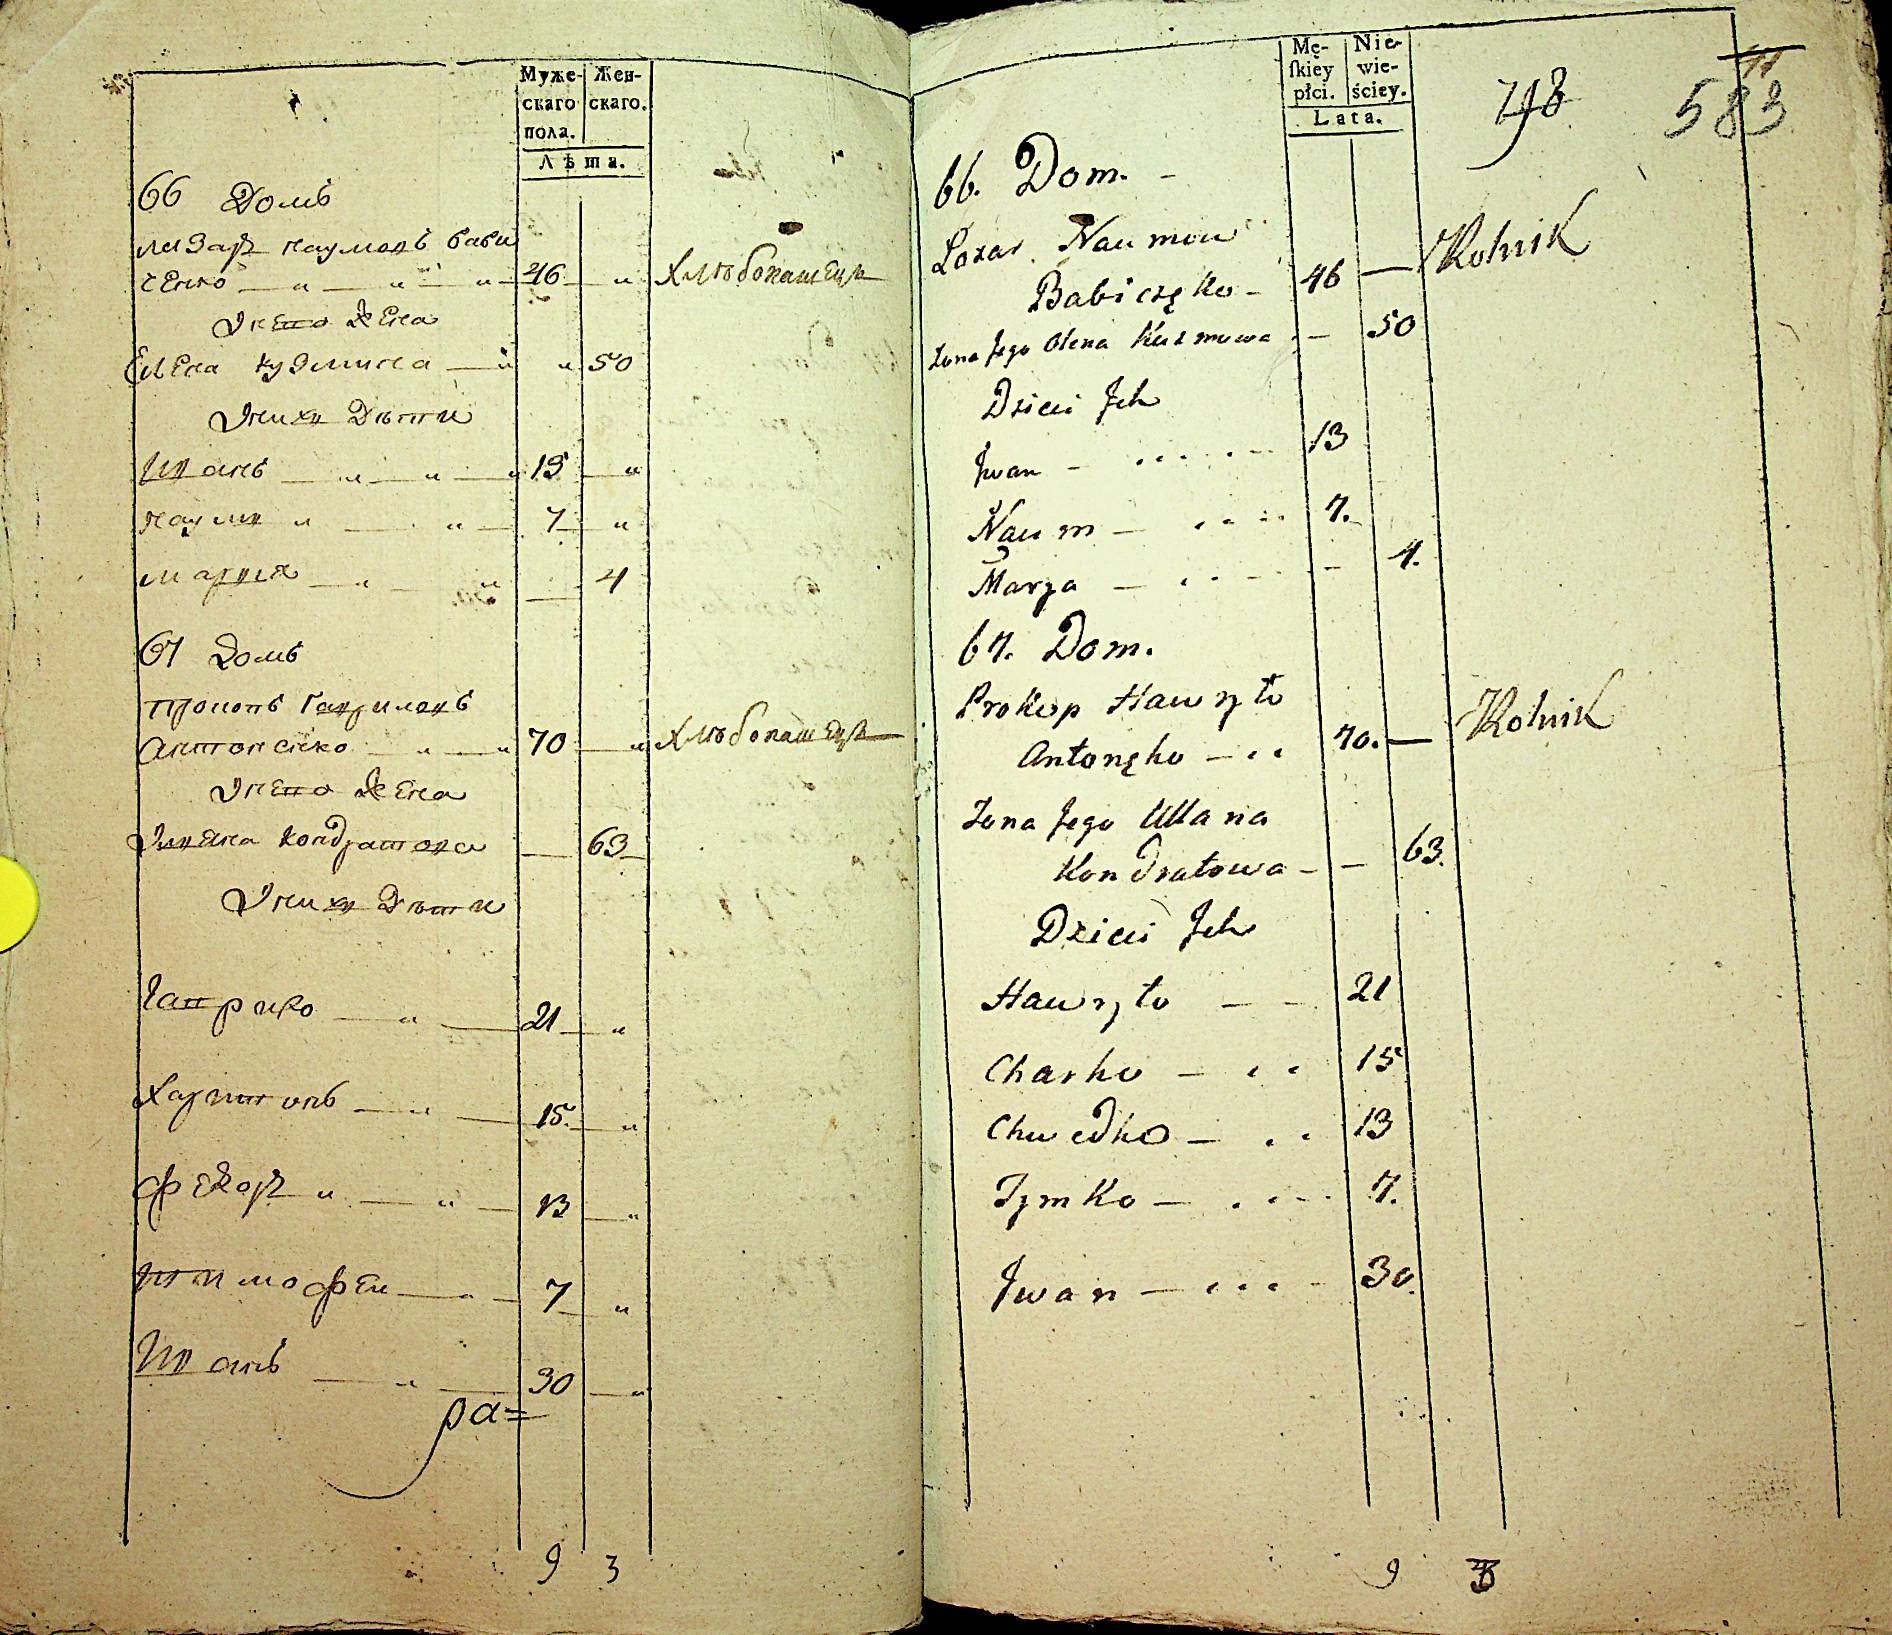 Муже-
скаго
пола.
Жен-
скаго.
Лѣта.
66 Домъ
Лазар Наумовъ баби
ченко 46 " хлѣбопашецъ
У него жена
Елена Кузмина " 50
У них дѣти
Иванъ 13 "
Наум 7 "
Мария 4
67 Домъ
Прокопъ Гавриловъ
Антоненко 70 " хлѣбопашецъ
У него жена
Ульяна Кондратова 63
У них дѣти
Гаврило 21 "
Харитонъ 15 "
Федор 13 "
Тимофеи 7 "
Иванъ 30 "
ра=
9 3
Mę-
ſkiey
płci.
Nie-
wie-
ściey.
Lata.
583
66. Dom.
Łazar Naumow
Babiczęko 46 — Rolnik
Żona Jego Olena Kuzmowa — 50
Dzieci Ich
Jwan 13
Naum 7.
Marya 4.
67. Dom.
Prokop Hawryło
Antonęko 70. — Rolnik
Żona Jego Ullana
Kondratowa — 63.
Dzieci Ich
Hawryło 21
Charko 15
Chwedko 13
Tymko 7.
Jwan 30.
9 3